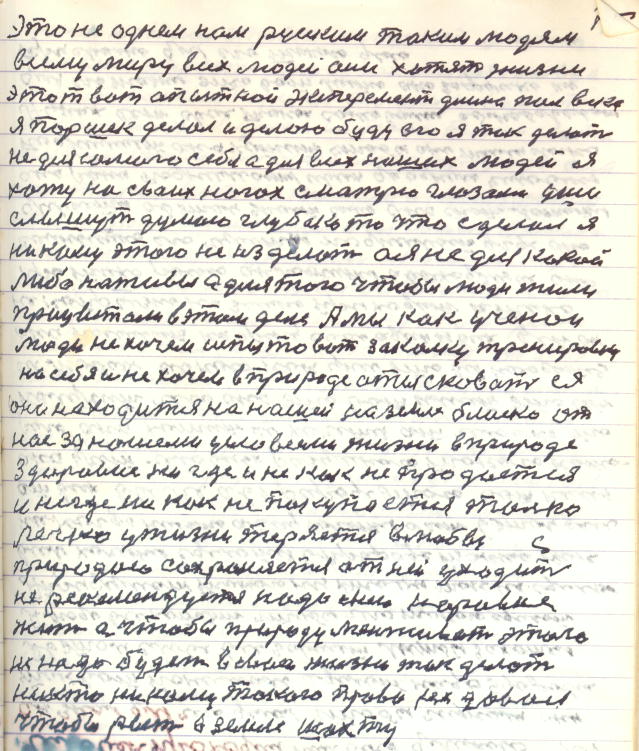 Это не однем нам руским таким людям
всему миру всех людей они хотят жизни
этот вот опытной эксперемент длина пол века
я Поршек делал и делаю буду его я так делать
не для самого себя а для всех наших людей я
хожу на своих ногах сматрю глозами уши
слышут думаю глубако то что сделал я
никому этого не изделат а я не для какой
либо наживы а для того чтобы люди жили
процветали в этом деле А мы как ученои
люди не хочем испытоват закалку тренировку
на себя и не хочем в природе атысковат ся
они находится на нашей на земле близко от
нас за нашеми условеями жизни в природе
Здоровие ни где и не как не продается
и негде ни как не покупается только
легко у жизни теряется в любви с
природаю сохраняется от ней уходит
не рекомендуется надо с нею наровне
жит а чтобы природу менживат этого
не надо будет в своей жизни так делат
никто никому такого права не довал
чтобы рват в земле шахту